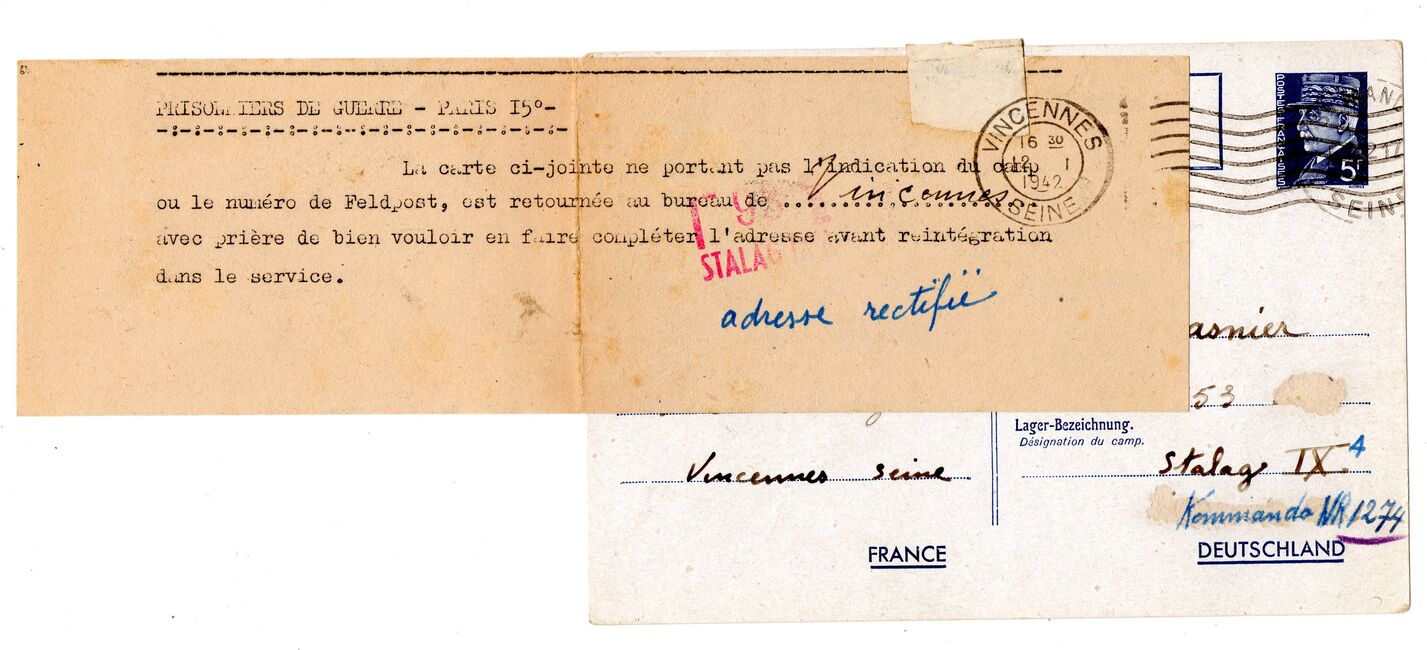 PRISONNIERS DE GUERRE - PARIS I5°-
La carte ci-jointe ne portant pas l'indication du camp
ou le numéro de Feldpost, est retournée au bureau de Vincennes
avec prière de bien vouloir en faire compléter l'adresse avant reintégration
dans le service.
STALAG
adresse rectifiée
VINCENNES
16 30
12 I
1942
SEINE
POSTES FRANÇAISES
5F
SEINE
asnier
53
Lager-Bezeichnung.
Désignation du camp.
Stalag IX 4
Kommando NR 1274
DEUTSCHLAND
Vincennes Seine
FRANCE